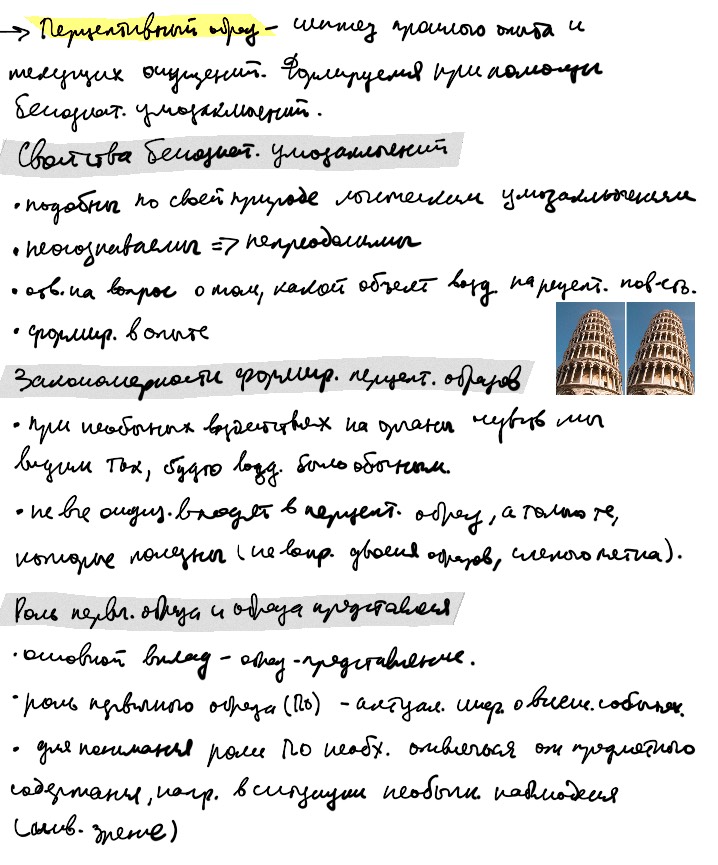 → Перцептивный образ - синтез прошлого опыта и
текущих ощущений. Формируется при помощи
бессознат. умозаключений.
Свойства бессознат. умозаключений
• подобны по своей природе логическим умозаключениям
• неосознаваемы => непреодолимы
• отв. на вопрос о том, какой объект возд. на рецепт. пов-сть.
• формир. в опыте
Закономерности формир. перцепт. образов
• при необычных воздействиях на органы чувств мы
видим так, будто возд. было обычным.
• не все ощущ. входят в перцепт. образ, а только те,
которые полезны (не воспр. двоения образов, слепого пятна).
Роль первич. образа и образа представления
• основной вклад - образ-представление.
• роль первичного образа (ПО) - актуал. инф. о внеш. событиях.
• для понимания роли ПО необх. отвлечься от предметного
содержания, напр. в ситуации необычн. наблюдения
(инв. зрение)